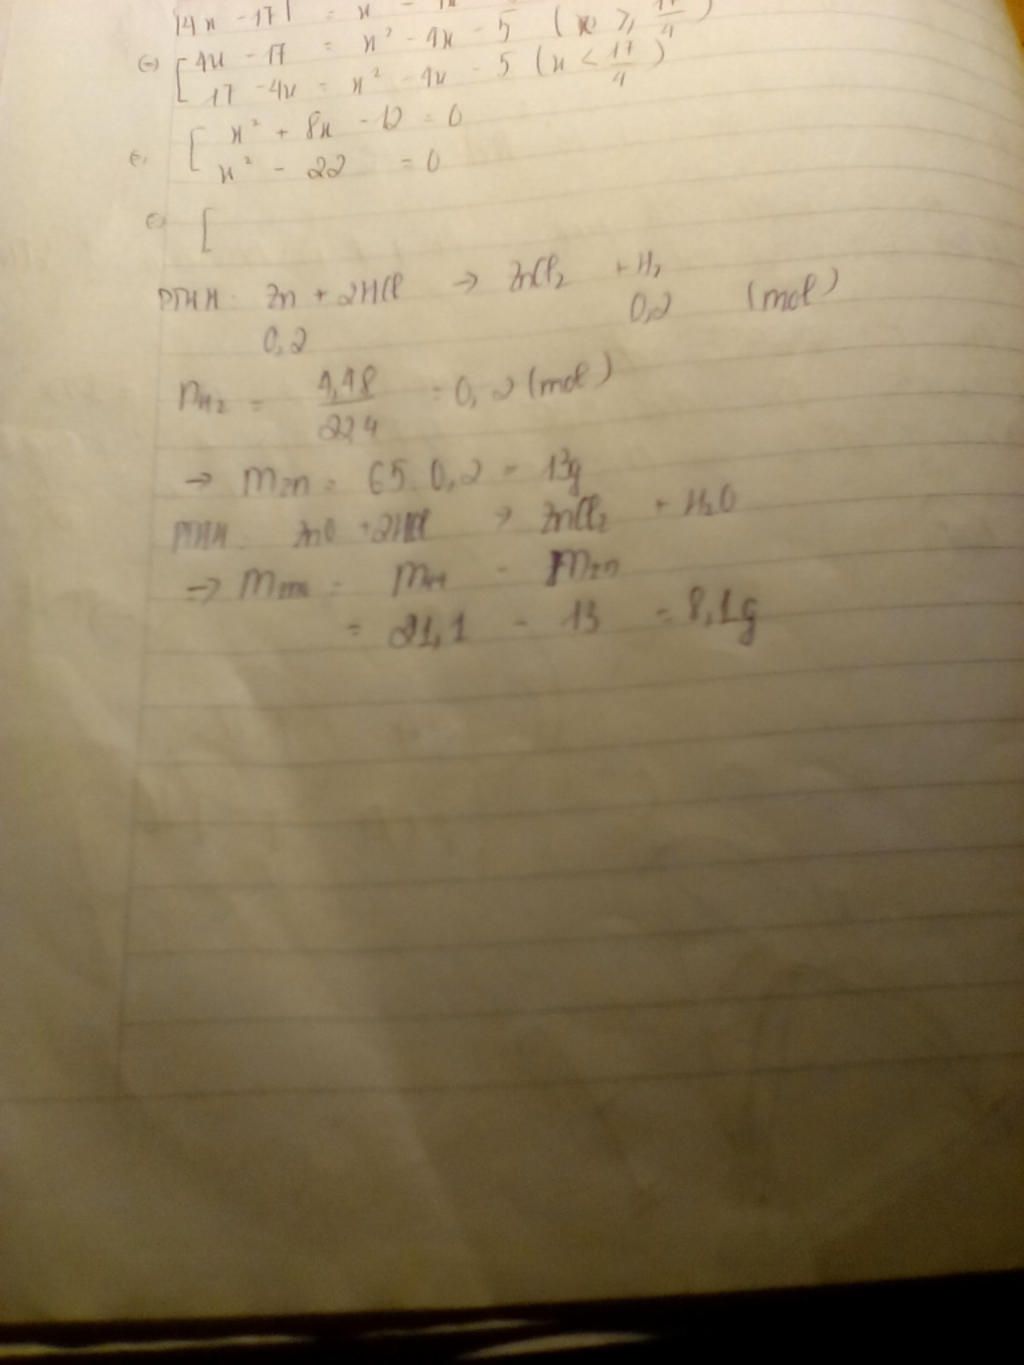 |4x - 17| = x
(=) [ 4x - 17 = x² - 4x - 5 ( x ≥ 17/4 )
17 - 4x = x² - 4x - 5 ( x < 17/4 )
[ x² + 8x - 12 = 0
x² - 22 = 0
[
PTHH: Zn + 2HCl → ZnCl₂ + H₂
0,2 0,2 (mol)
nH₂ = 4,48/22,4 = 0,2 (mol)
→ mZn = 65 . 0,2 = 13g
PTHH: ZnO + 2HCl → ZnCl₂ + H₂O
=> m = m - mZn
= 21,1 - 13 = 8,1g